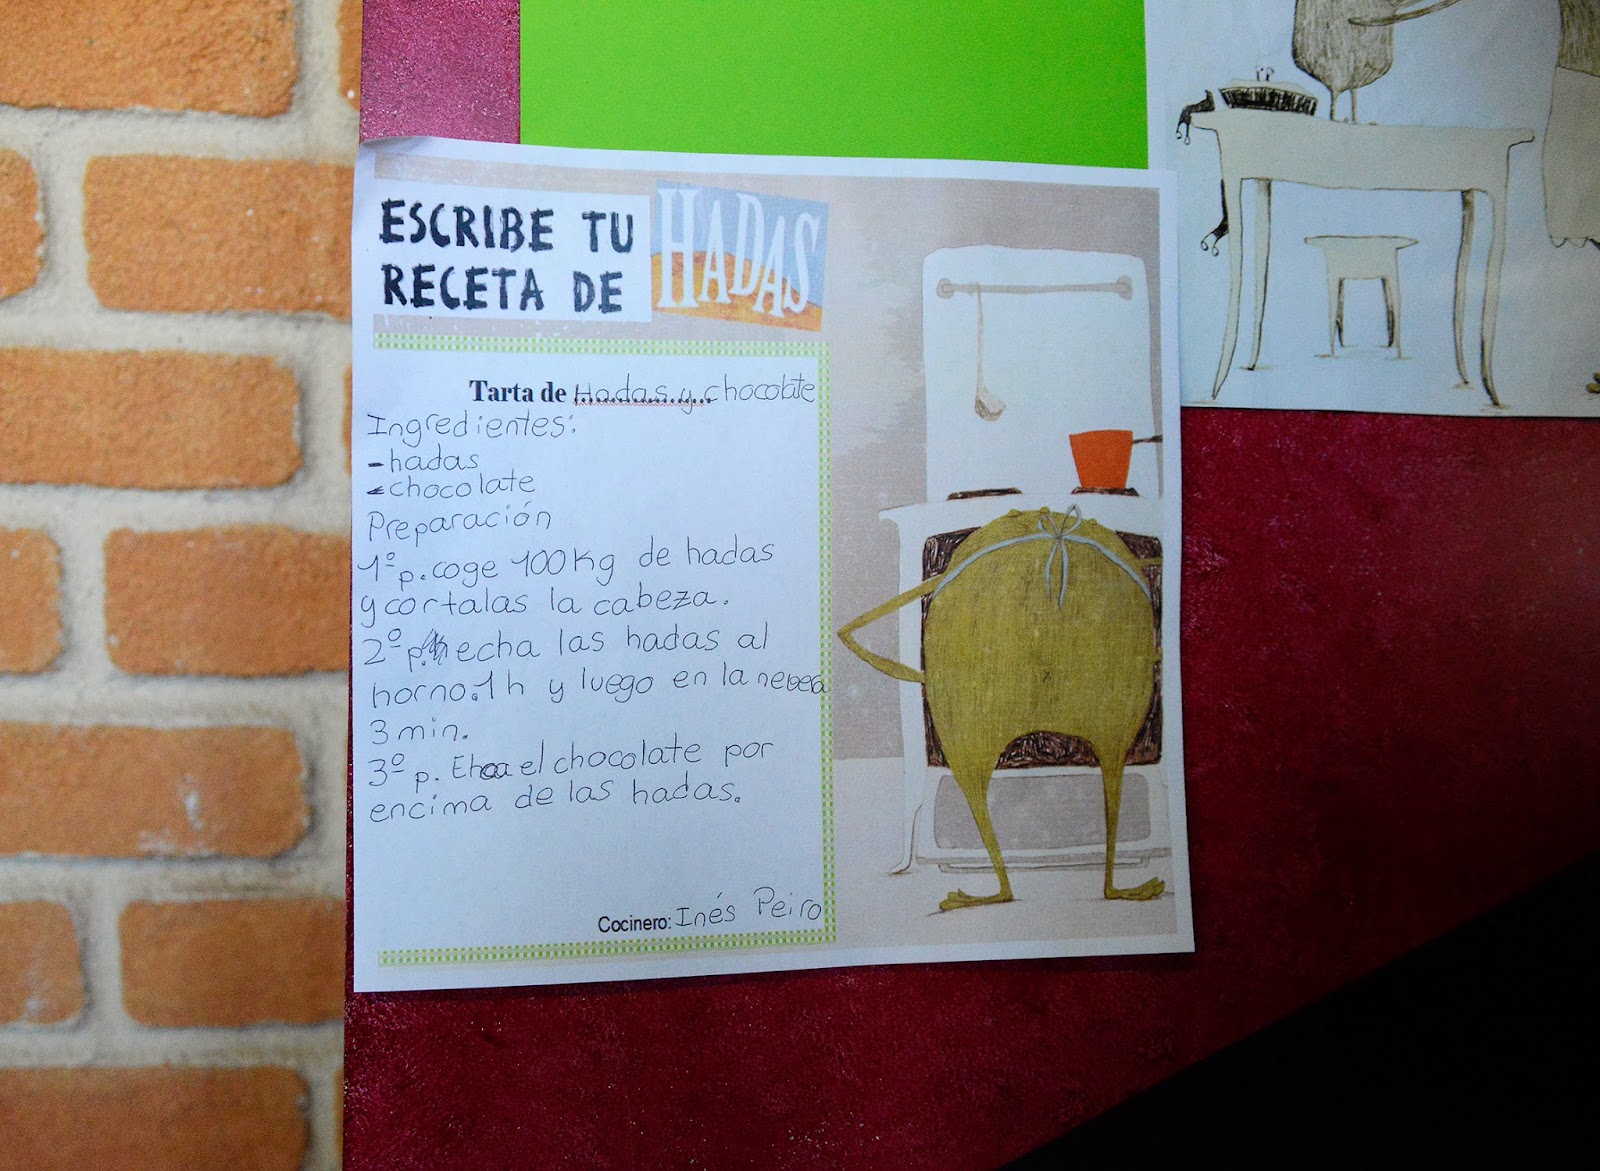 ESCRIBE TU
RECETA DE HADAS
Tarta de Hadas y chocolate
Ingredientes:
-hadas
-chocolate
Preparación
1º p. coge 100 Kg de hadas
y cortalas la cabeza.
2º p. echa las hadas al
horno. 1 h y luego en la nevera
3 min.
3º p. Echa el chocolate por
encima de las hadas.
Cocinero: Inés Peiro